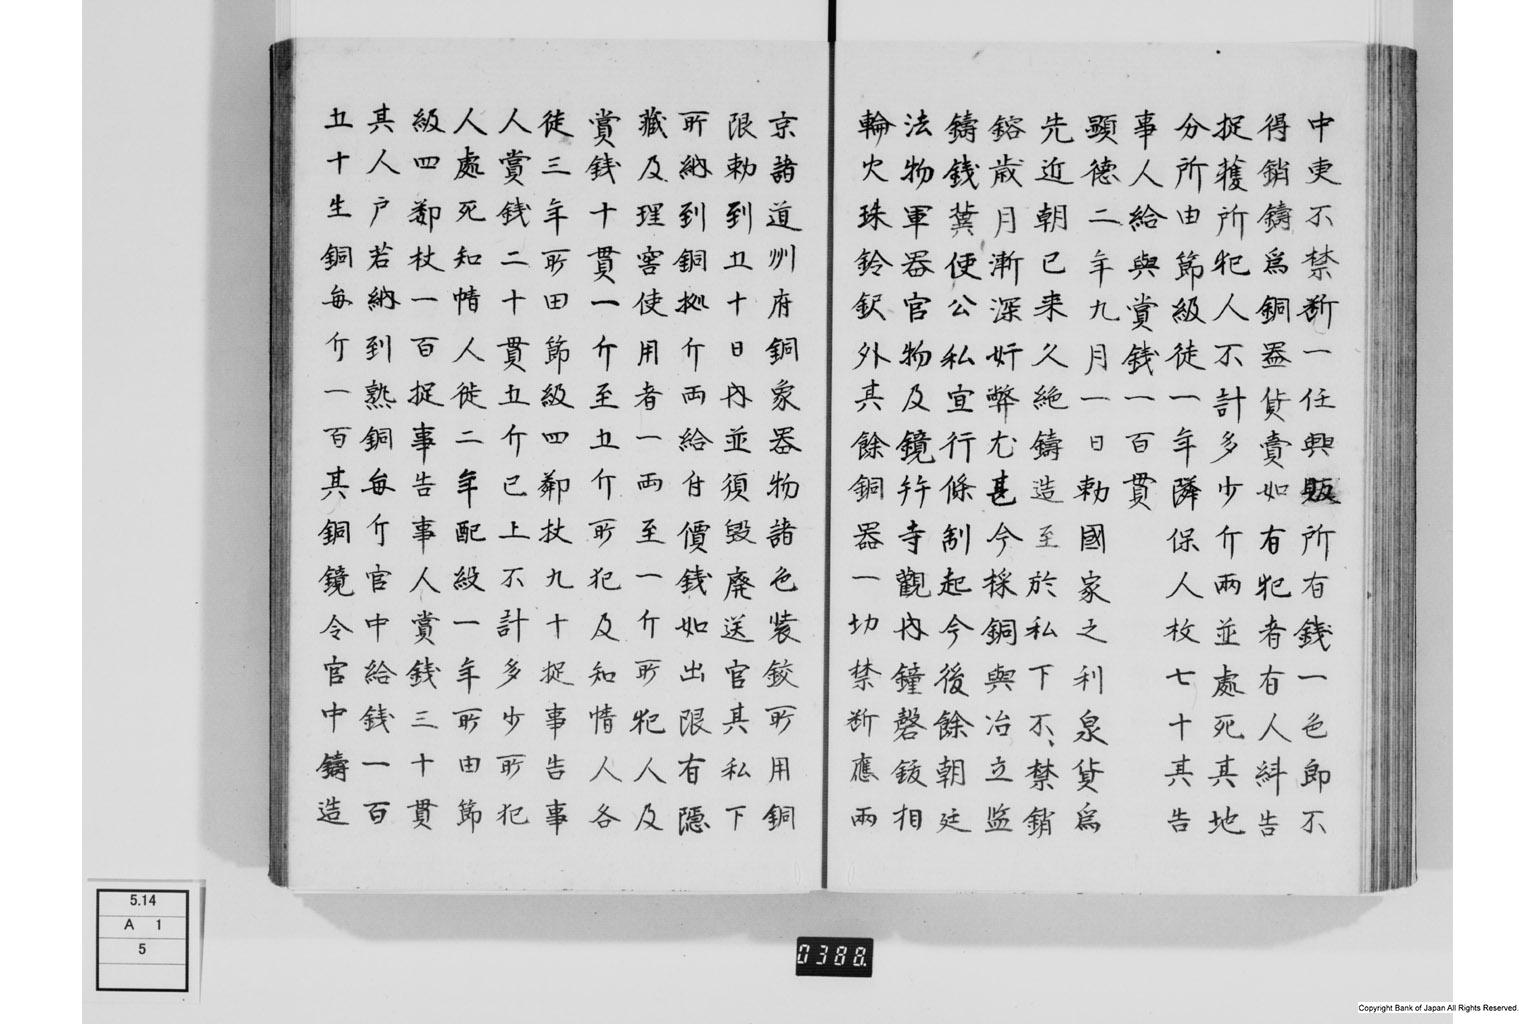 中更不禁斷一任興販所有錢一色即不
得銷鑄爲銅器貨賣如有犯者有人糾告
捉獲所犯人不計多少斤兩並處死其地
分所由節級徒一年隣保人杖七十其告
事人給與賞錢一百貫
顯德二年九月一日勅國家之利泉貨爲
先近朝已来久絶鑄造至於私下不禁銷
鎔歳月漸深奸弊尤甚今採銅興冶立監
鑄錢冀便公私宜行條制起今後餘朝廷
法物軍器官物及鏡幷寺觀內鐘磬鈸相
輪火珠鈴鈬外其餘銅器一切禁斷應兩
京諸道州府銅象器物諸色裝鉸所用銅
限勅到五十日內並須毀廃送官其私下
所納到銅㨿斤兩給付價錢如出限有隱
藏及埋窖使用者一兩至一斤所犯人及
賞錢十貫一斤至五斤所犯及知情人各
徒三年所田節級四鄰杖九十捉事告事
人賞錢二十貫五斤已上不計多少所犯
人處死知情人徙二年配役一年所由節
級四鄰杖一百捉事告事人賞錢三十貫
其人戶若納到熟銅每斤官中給錢一百
五十生銅每斤一百其銅鏡令官中鑄造
5.14
A 1
5
0388.
Copyright Bank of Japan All Rights Reserved.